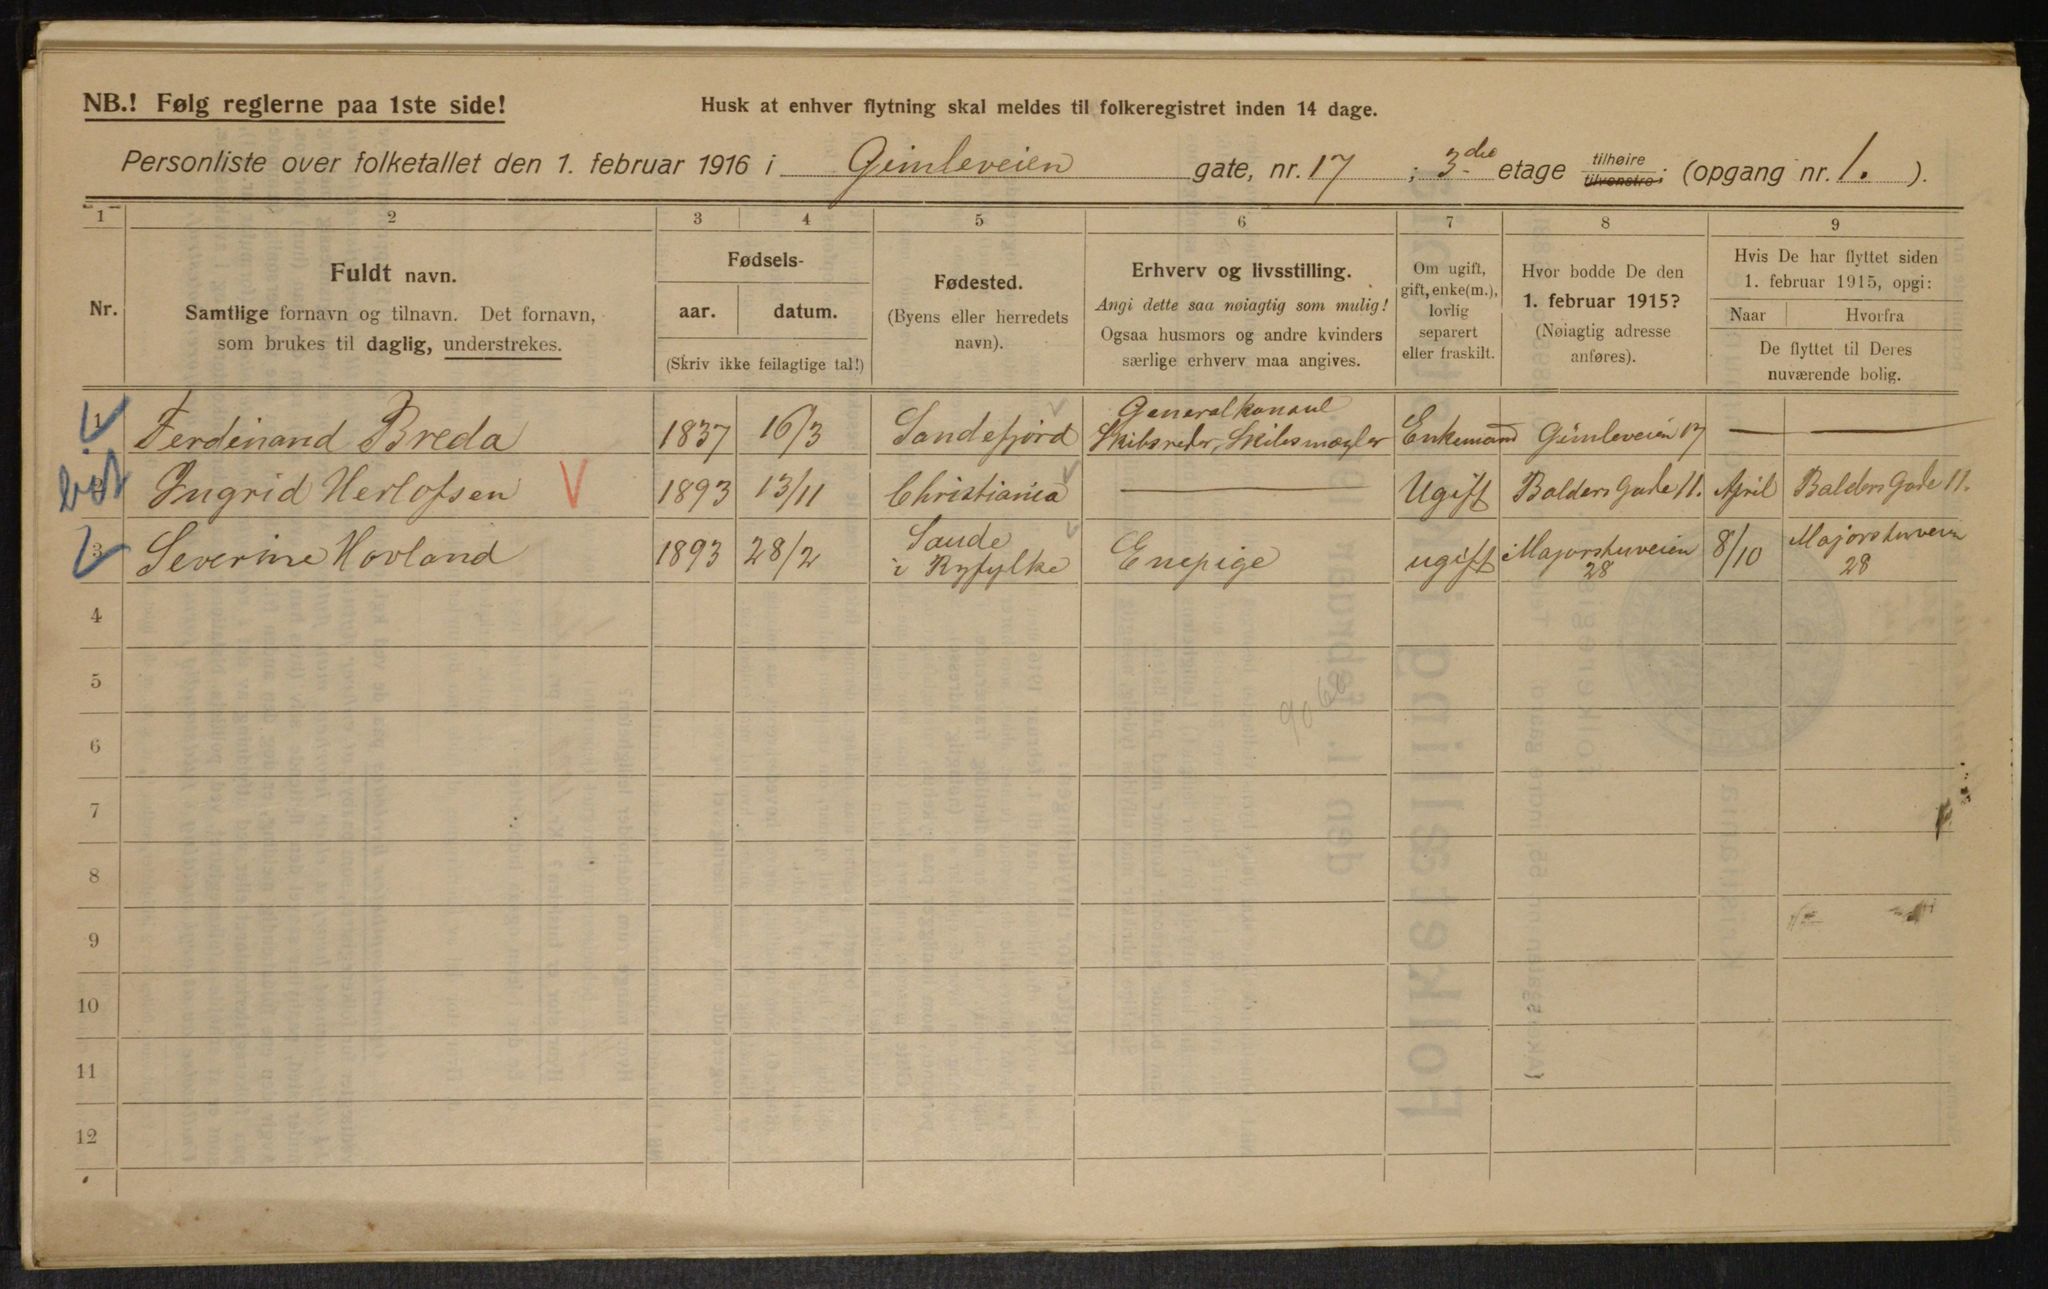 NB.! Følg reglerne paa 1ste side!
Husk at enhver flytning skal meldes til folkeregistret inden 14 dage.
Personliste over folketallet den 1. februar 1916 i Gimleveien gate, nr. 17 ; 3die etage tilhøire tilvenstre (opgang nr. 1. ).
1 2 3 4 5 6 7 8 9
Nr.
Fuldt navn.
Samtlige fornavn og tilnavn. Det fornavn,
som brukes til daglig, understrekes.
Fødsels-
aar. datum.
(Skriv ikke feilagtige tal!)
Fødested.
(Byens eller herredets
navn).
Erhverv og livsstilling.
Angi dette saa nøiagtig som mulig!
Ogsaa husmors og andre kvinders
særlige erhverv maa angives.
Om ugift,
gift, enke(m.),
lovlig
separert
eller fraskilt.
Hvor bodde De den
1. februar 1915?
(Nøiagtig adresse
anføres).
Hvis De har flyttet siden
1. februar 1915, opgi:
Naar Hvorfra
De flyttet til Deres
nuværende bolig.
1 Ferdinand Breda 1837 16/3 Sandefjord Generalkonsul
Skibsreder, Skibsmægler Enkemand Gimleveien 17 — —
Ingrid Herlofsen V 1893 13/11 Christiania — Ugift Balders Gade 11. April Balders Gade 11.
3 Severine Hovland 1893 28/2 Saude
i Ryfylke Enepige ugift Majorstuveien
28 8/10 Majorstuveien
28
4
5
6
7
8
9
10
11
12